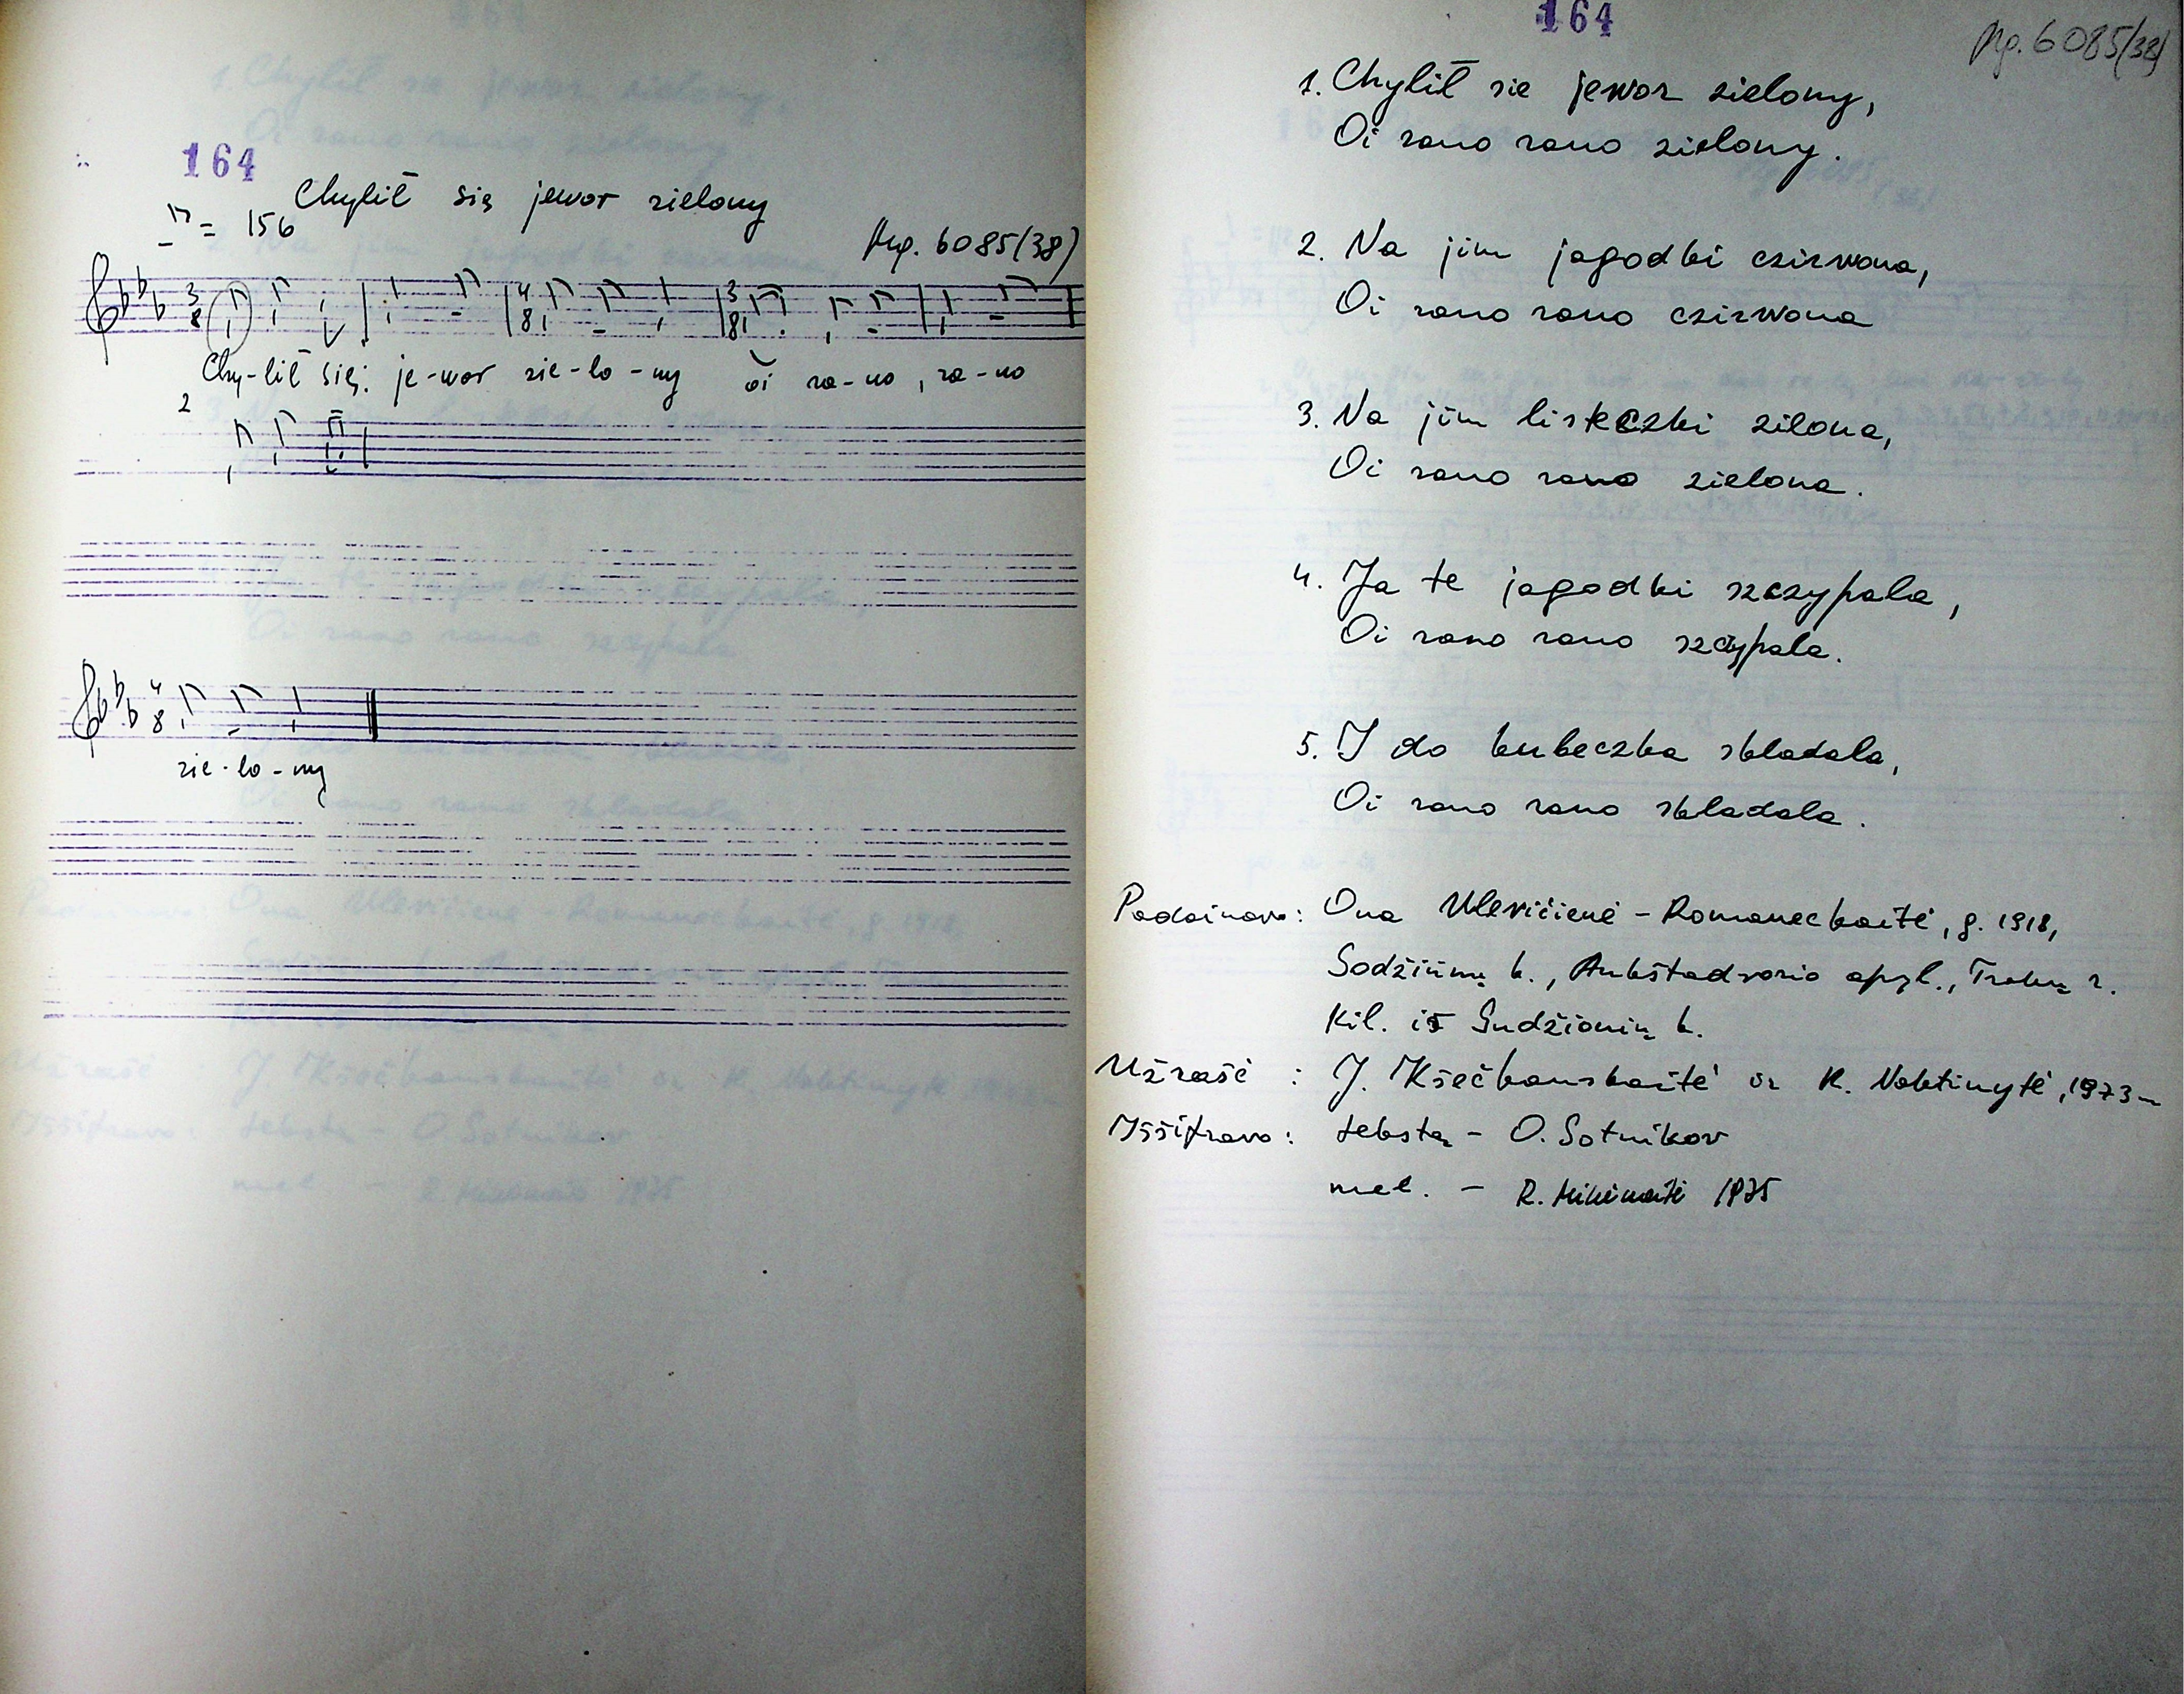 164
Chylił się jewor zielony
= 156
Mg. 6085(38)
3 8 4 8 3 8
Chy-lił się: je-wor zie-lo-ny oi ra-no, ra-no
2
4 8
zie-lo-ny
164
Mg. 6085(38)
1. Chylił sie jewor zielony,
Oi rano rano zielony.
2. Na jim jagodki czirwona,
Oi rano rano czirwona
3. Na jim listeczki zilona,
Oi rano rano zielona.
4. Ja te jagodki szczypala,
Oi rano rano szczypala.
5. I do kubeczka skladala,
Oi rano rano skladala.
Padainavo: Ona Ulevičienė - Romaneckaitė, g. 1918,
Sodžiūnų k., Aukštadvario apyl., Trakų r.
Kil. iš Sudžionių k.
Užrašė : J. Kšečkauskaitė ir R. Noktinytė, 1973 m
Iššifravo: tekstą - O. Sotnikov
mel. - R. 1975